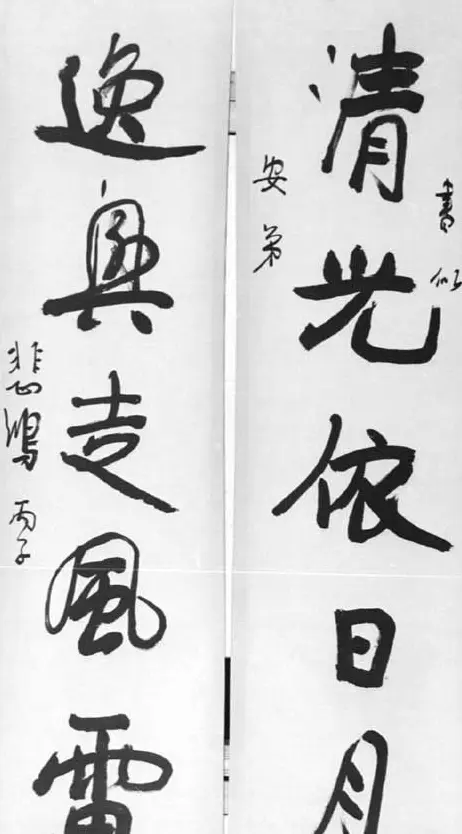 書似
清光依日月
安弟
逸興走風雷
悲鴻 丙子